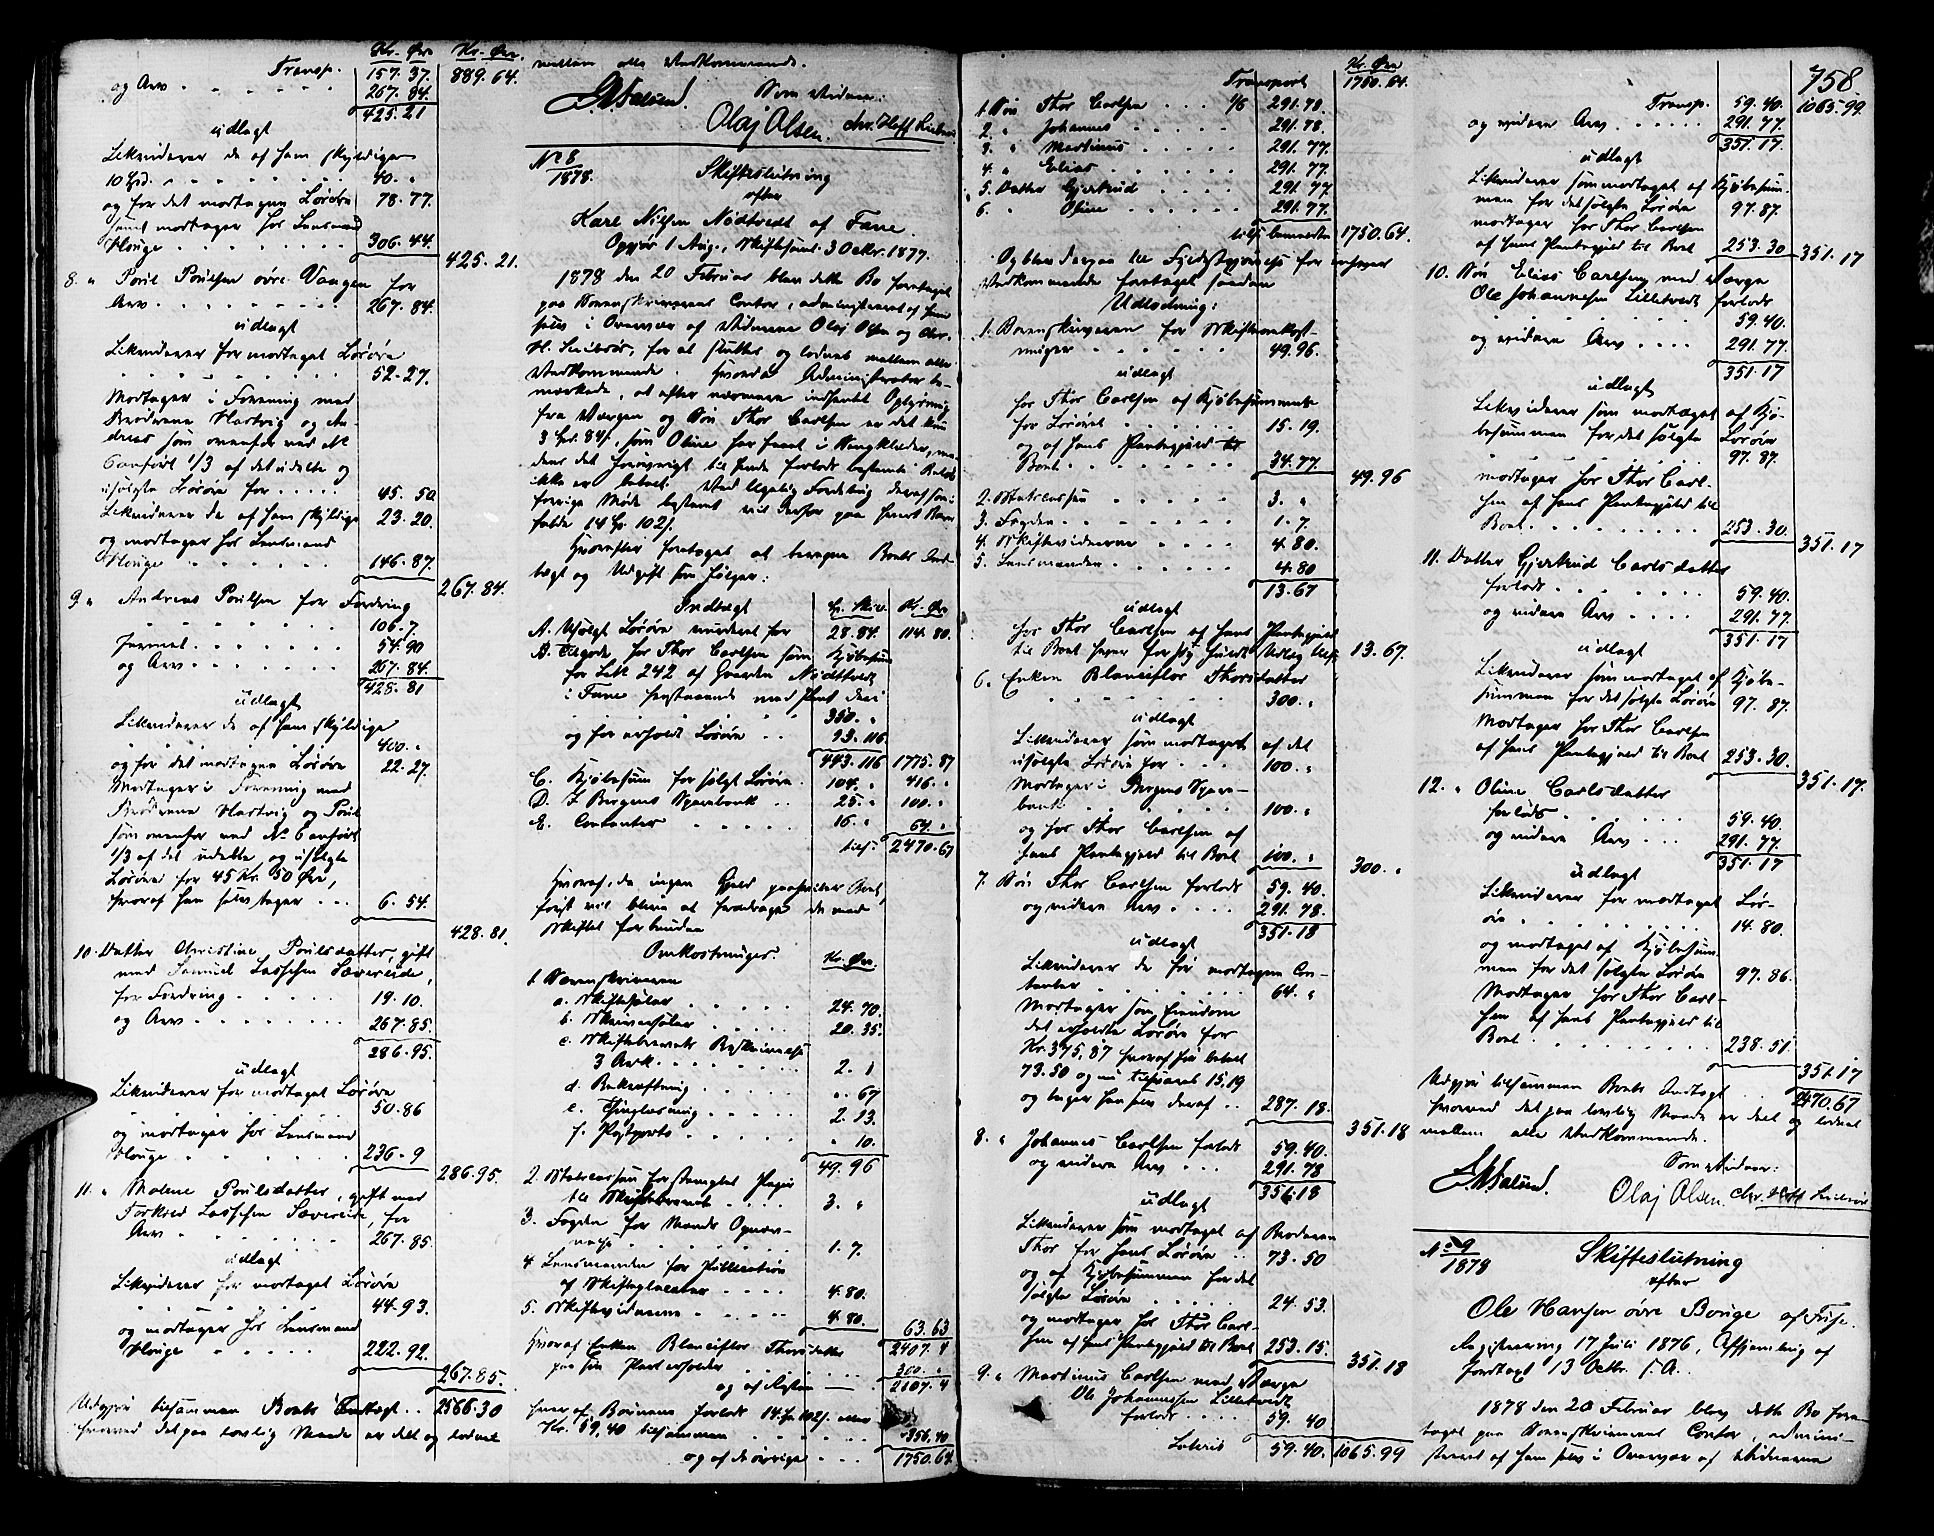 Kr. Øre Kr. Øre.
Transp. 157.37. 889.64.
og Arv 267.84.
425.21
udlagt
Likviderer de af ham skyldige
10 Spd. 40. "
og for det modtagne Løsøre 78.77.
samt modtager hos Lensmand
Houge 306.44.
425.21.
8. " Poul Poulsen øvre Vangen for
Arv 267.84.
udlagt
Likviderer for modtaget Løsøre
52.27.
Modtager i Forening med
Brødrene Hartvig og An-
dreas som ovenfor ved No
6 anført 1/3 af det udelte og
usolgte Løsøre for 45.50
Likviderer de af ham skyldige 23.20.
og modtager hos Lensmand
Houge 146.87.
267.84.
9 " Andreas Poulsen for Fordring
106.7.
54.90
og Arv 267.84.
428.81
udlagt
Likviderer de af ham skyldige
400. "
og for det modtagne Løsøre 22.27.
Modtager i Forening med
Brødrene Hartvig og Poul
som ovenfor ved No 6 anført
1/3 af det udelte og usolgte
Løsøre for 45 Kr. 50 Øre,
hvoraf han selv tager 6.54.
428.81.
10. Datter Christine Poulsdatter, gift
med Samuel Lassesen Sævereide,
for Fordring 19.10.
og Arv 267.85.
286.95.
udlagt
Likviderer for modtaget Løsøre
50.86
og modtager hos Lensmand
Houge 236.9
286.95.
11. " Malene Poulsdatter, gift med
Torkild Lassesen Sævereide, for
Arv 267.85.
udlagt
Likviderer for modtaget Løsøre
44.93.
og modtager hos Lensmand
Houge 222.92.
267.85.
Udgjør tilsammen Boets Indtægt 2566.30
hvorved det paa lovlig Maade er delt og loddet
mellem alle Vedkommende.
Som Vidner:
Olaj Olsen. Chr.
No 8
1878.
Skifteslutning
efter
Kari Nilsen Nødtvedt af Fane.
Opgjør 1 Aug., Skiftesaml. 30 Oktr. 1877.
1878 den 20 Februar blev dette Bo foretaget
paa Sorenskriverens Contor, administreret af ham
selv i Overvær af Vidnerne Olaj Olsen og Chr.
H. for at sluttes og loddes mellem alle
Vedkommende. Hvorda Administrator be-
mærkede, at efter nærmere indhentet Oplysning
fra Værgen og Søn Thor Carlsen er det kun
3 Spd. 84 s, som Oline har faaet i Sengklæder, me-
dens det forøvrigt til hende forlods bestemte Beløb
ikke er betalt. Ved ligelig Fordeling deraf som i
forrige Møde bestemt vil derfor paa hvert Barn
falde 14 Sp. 102 s.
Hvorefter foretoges at beregne Boets Ind-
tægt og Udgift som følger:
Indtægt Sp. Skill. Kr. Øre
A. Usolgt Løsøre vurderet for 28.84. 114.80.
B. Tilgode hos Thor Carlsen som Kjøbesum
for Litr 242 af Gaarden Nødtvedt
i Fane henstaaende med Pant deri
350. "
og for erholdt Løsøre 93.116.
443.116 1775.87
C. Kjøbesum for solgt Løsøre 104. " 416. "
D. I Bergens Sparebank 25. " 100. "
E. Contanter 16. " 64. "
tils. 2470.67
Hvoraf, da ingen Gjeld paahviler Boet,
først vil blive at fradrage de med
Skiftet forbundne
Omkostninger. Kr. Øre.
1 Sorenskriveren
a. Skiftesalær 24.70.
b. Skriversalær 20.35.
c. Skiftebrevets Beskrivelse
3 Ark 2. "
d. Bekræftning ". 67
e. Thinglæsning 2.13.
f. Postporto ". 10.
49.96
2. Statscassen for stemplet Papir
til Skiftebrevet 3. "
3. Fogden for Mænds Opnæv-
nelse 1.7.
4 Lensmanden for Publication
af Skifteplacater 4.80.
5. Skiftevidnerne 4.80.
63.63
Hvoraf Enken Blanceflor Thorsdatter 2407.4
paa sin Part erholder 300. "
og af Resten 2107.4
hver af Børnene forlods 14 Sp. 102 s. eller
Kr. 59,40 tilsammen 356.40
og af de øvrige 1750.64.
758.
Kr. Øre
Transport 1750.64.
1. Søn Thor Carlsen 1/6 291.78.
2. " Johannes 291.78.
3. " Martinus 291.77.
4. " Elias 291.77.
5. Datter Gjertrud 291.77
6. " Oline 291.77.
tils bemeldte 1750.64.
Og blev derpaa til Fyldestgjørelse for enhver
Vedkommende foretaget saadan
Udlodning:
1. Sorenskriveren for Skifteomkost-
ninger 49.96.
udlagt
hos Thor Carlsen af Kjøbesummen
for Løsøret 15.19.
og af hans Pantegjæld til
Boet 34.77.
49.96
2. Statscassen 3. "
3. Fogden 1.7.
4. Skiftevidnerne 4.80.
5. Lensmanden 4.80
13.67
udlagt
hos Thor Carlsen af hans Pantegjæld
til Boet 13.67.
6. Enken Blanceflor Thorsdatter
300. "
udlagt
Likviderer som modtaget af det
usolgte Løsøre for 100. "
Modtager i Bergens Spare-
bank 100. "
og hos Thor Carlsen af
hans Pantegjæld til Boet 100. "
300. "
7. Søn Thor Carlsen forlods 59.40.
og videre Arv 291.78.
351.18
udlagt
Likviderer de for modtagne Con-
tanter 64. "
Modtager som Eiendom
det erholdte Løsøre for
Kr. 375,87 hvoraf han betalt
73.50 og nu tilsvaret 15,19
og tager han selv deraf 287.18.
351.18
8. " Johannes Carlsen forlods 59.40.
og videre Arv 291.78
351.18
udlagt
Likviderer som modtaget af Broderen
Thor for hans Løsøre 73.50
og af Kjøbesummen for det
solgte Løsøre 24.53.
og modtager hos Thor Carl-
sen af hans Pantegjæld til Boet 253.15.
351.18
9. " Martinus Carlsen med Værge
Ole Johannessen Lilletvedt
forlods 59.40
Lateris 59.40. 1065.99
Transp. 59.40. 1065.99.
og videre Arv 291.77.
351.17.
udlagt
Likviderer som modtaget af Kjøbesum-
men for det solgte Løsøre 97.87.
modtager hos Thor Carlsen
af hans Pantegjæld til Boet 253.30
351.17
10. Søn Elias Carlsen med Værge
Ole Johannesen Lilletvedt forlods
59.40.
og videre Arv 291.77.
351.17
udlagt
Likviderer som modtaget af Kjø-
besummen for det solgte Løsøre
97.87.
modtager hos Thor Carl-
sen af hans Pantegjæld til
Boet 253.30.
351.17
11. Datter Gjertrud Carlsdatter
forlods 59.40.
og videre Arv 291.77.
351.17
udlagt
Likviderer som modtaget af Kjøbe-
summen for det solgte Løsøre 97.87.
Modtager hos Thor Carlsen
af hans Pantegjæld til Boet 253.30.
351.17.
12. " Oline Carlsdatter
forlods 59.40.
og videre Arv 291.77.
351.17
udlagt
Likviderer for modtaget Løs-
øre 14.80.
og modtaget af Kjøbesum-
men for det solgte Løsøre 97.86.
Modtager hos Thor Carl-
sen af hans Pantegjæld til
Boet 238.51.
351.17
Udgjør tilsammen Boets Indtægt 2470.67
hvorved det paa lovlig Maade er delt og loddet
mellem alle Vedkommende.
Som Vidner:
Olaj Olsen. Chr.
No 9
1878
Skifteslutning
efter
Ole Hansen øvre Borge af Fuse.
Registrering 17 Juli 1876, Afhjemling af
foretagt 13 Octbr. s. A.
1878 den 20 Februar blev dette Bo fore-
taget paa Sorenskriverens Contor, admini-
streret af ham selv i Overvær af Vidnerne